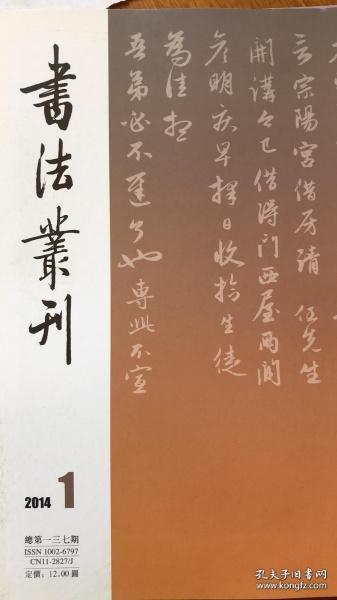 書法叢刊
2014 1
總第一三七期
ISSN 1002-6797
CN11-2827/J
定價：12.00圓
言宗陽宮借房請任先生
開講今已借得門西屋兩間
彥明疾早擇日收拾生徒
為佳想
吾弟必不遲了也專此不宣
孔夫子旧书网